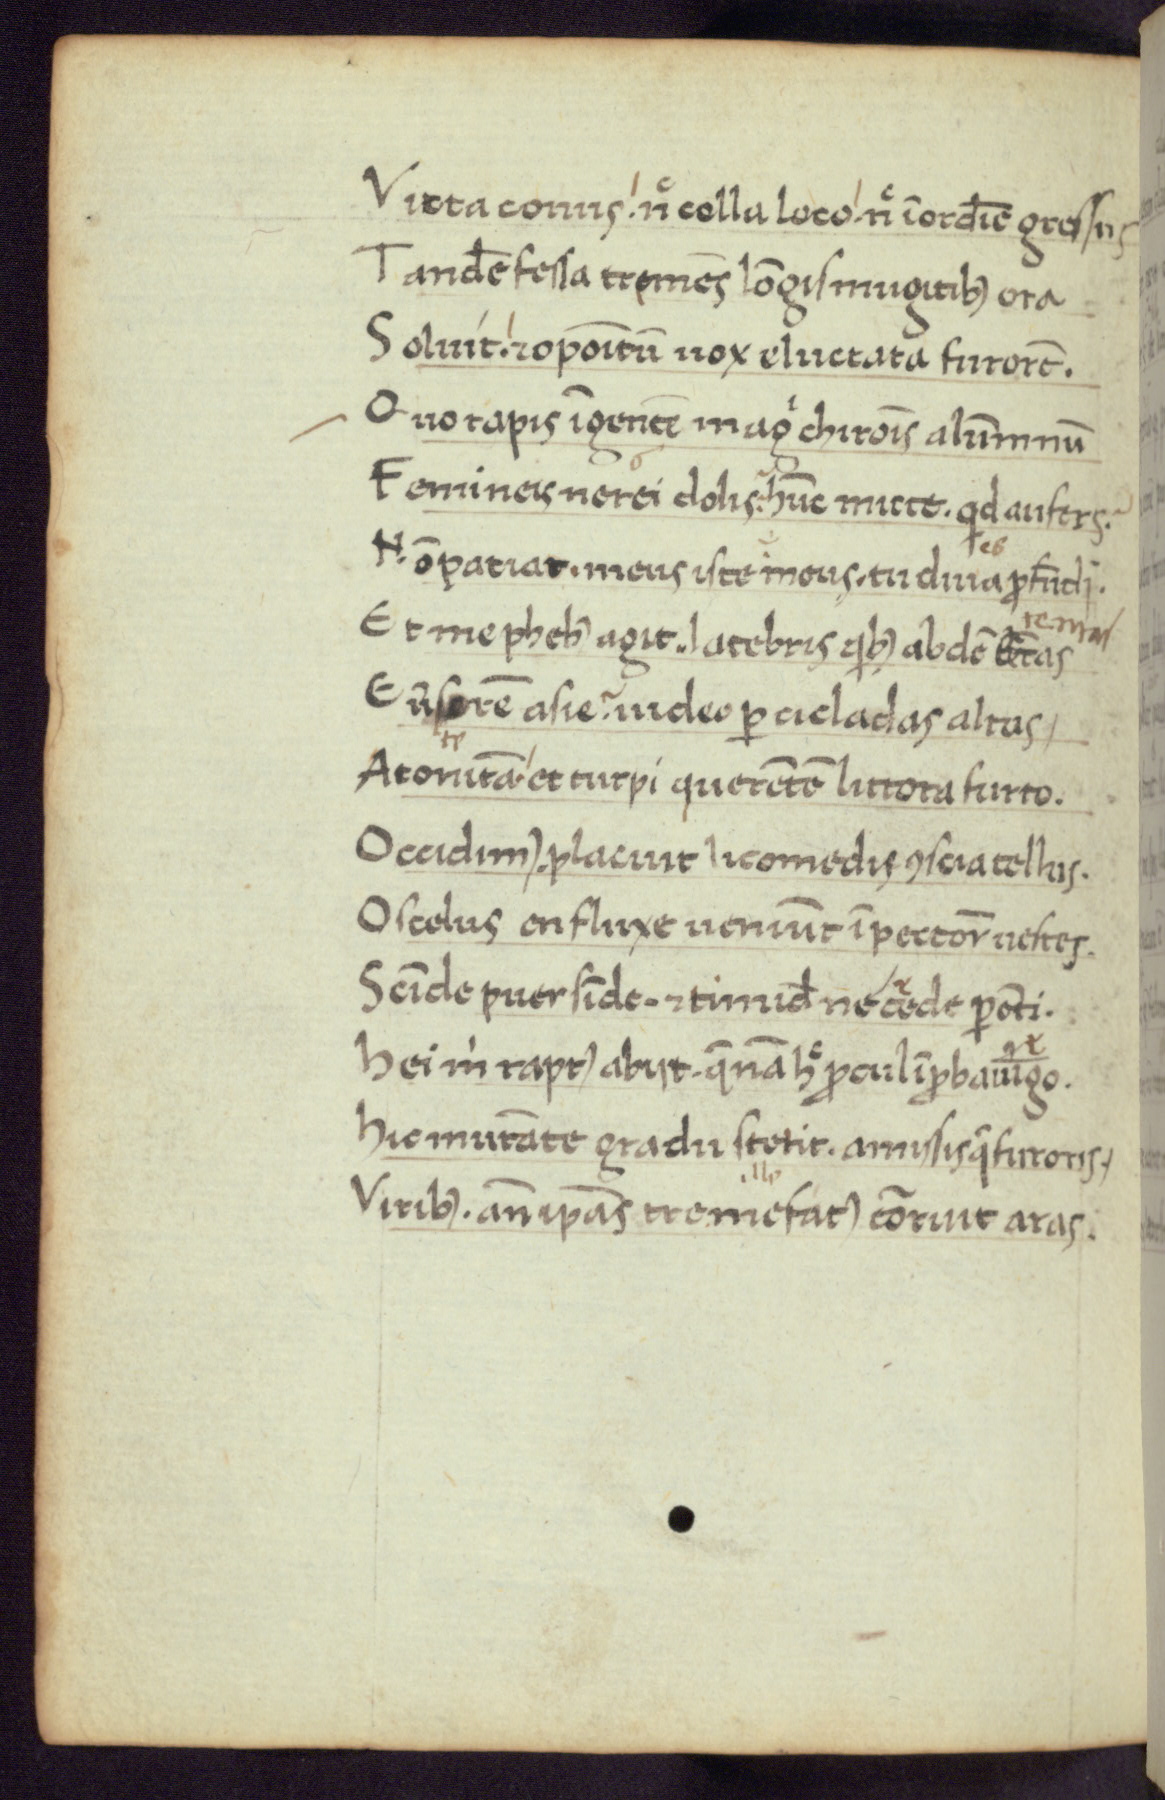 Vitta comis. nͨ colla loco. nͨ ī ordīe gressus
Tandē fessa tremēs lōgis mugitibꝫ ora
Soluit. ⁊ opoītū uox eluctata furorē.
Quo rapis īgentē magͥ chirōis alūmnū
Femineis nerei dolis. hūc mitte. qd aufers.
Nō patiar. meus iste meus. tu diua ꝓfūdi.
Et me phebꝰ agit. latebris qͥbꝫ abdē tētas
Eūsorē asie. uideo ꝑ cicladas altas
Atonitā et turpi querētē littora furto.
Occidimꝰ. placuit licomedis ꝯscia tellus.
O scelus en fluxe ueniūt ī pectorͣ uestes.
Scīde puer sīde. ⁊ timid̄ ne cede parēti.
Hei m̓ raptꝰ abijt. qͣnā hͨ ꝓcul īꝓba uͥgo.
Hic mutāte gradu stetit. amissisqꝫ furoris
Viribꝫ. an̄ ip̄as tremefactꝰ cōruit aras.